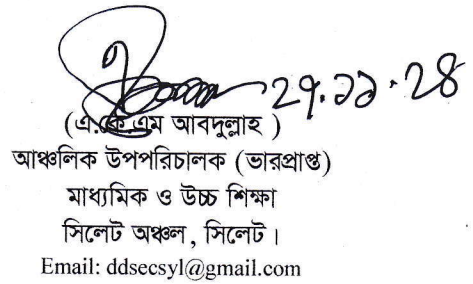 ২৭.১১.২৪
(এ.কে.এম আবদুল্লাহ )
আঞ্চলিক উপপরিচালক (ভারপ্রাপ্ত)
মাধ্যমিক ও উচ্চ শিক্ষা
সিলেট অঞ্চল, সিলেট।
Email: ddsecsyl@gmail.com